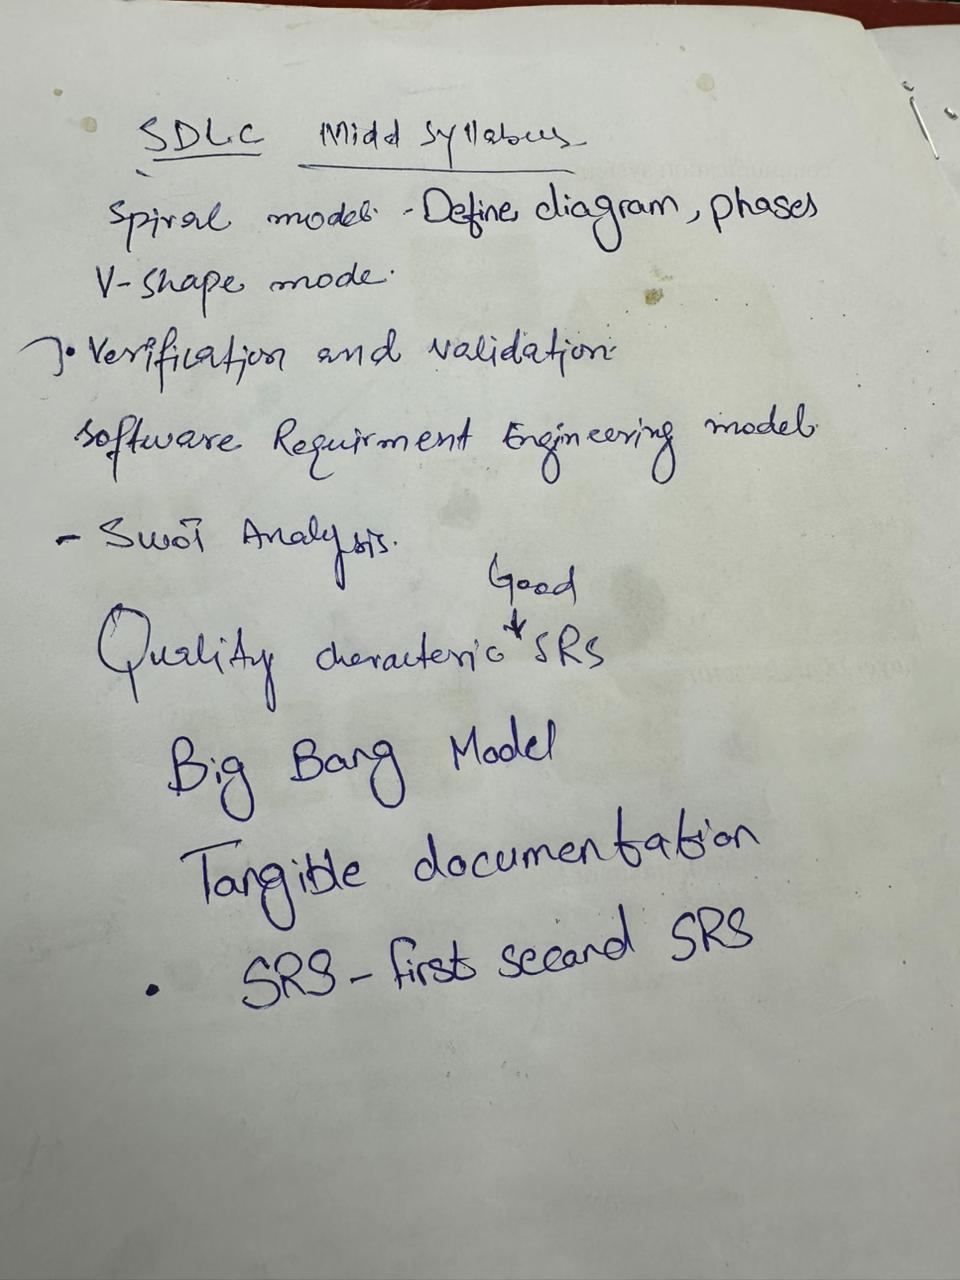 SDLC Midd Syllabus
Spiral model - Define, diagram, phases
V-Shape mode
Verification and validation
Software Requirment Engineering model
- SWOT Analysis.
Good
Quality characteric SRS
Big Bang Model
Tangible documentation
SRS - first second SRS